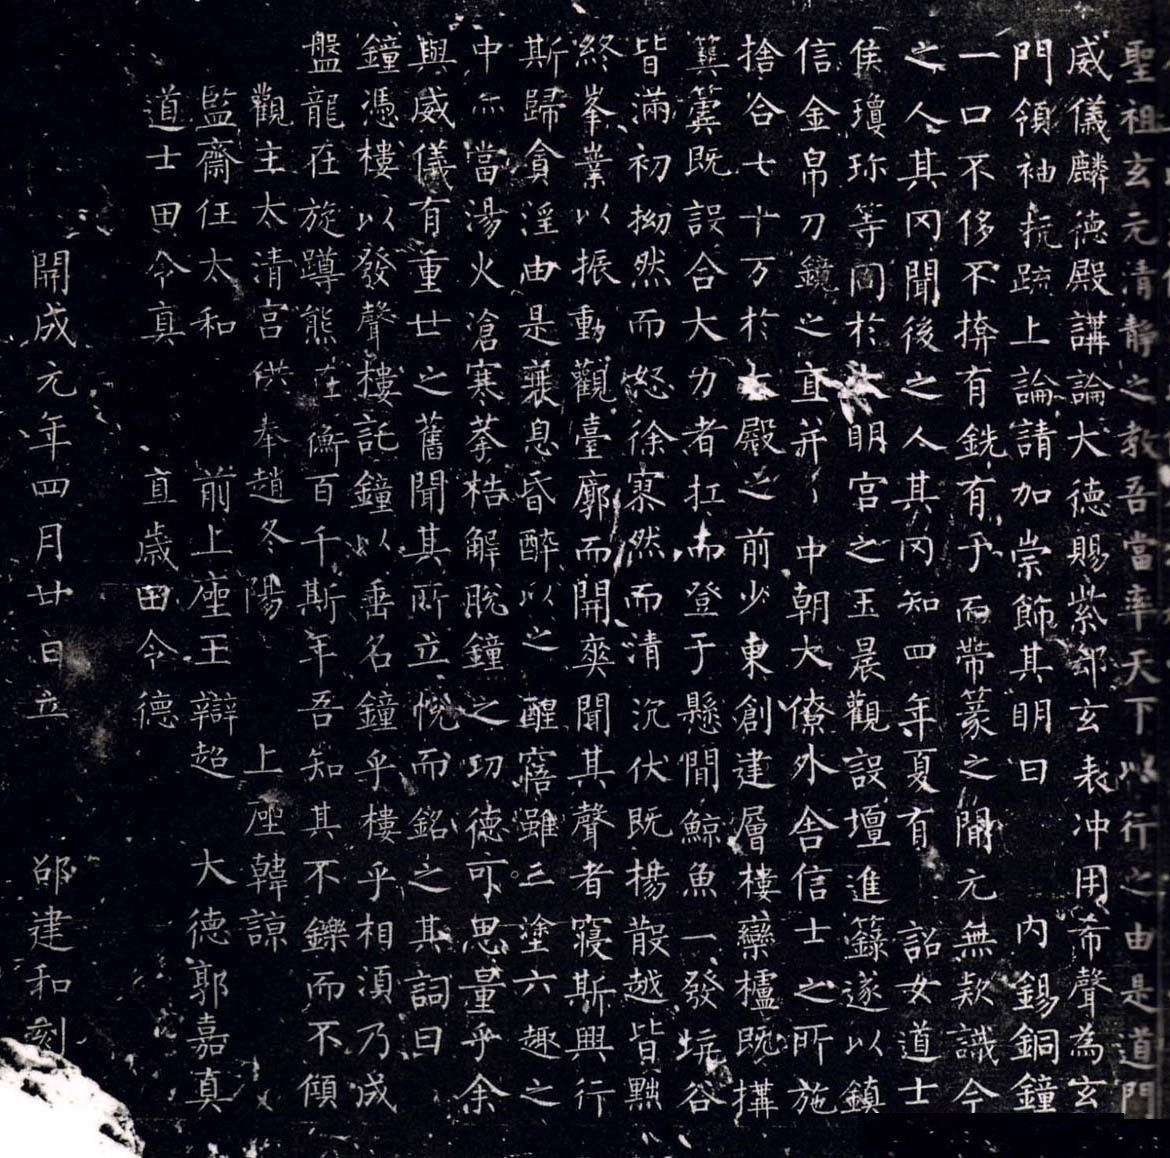 聖祖玄元清静之教吾當率天下以行之由是道門
威儀麟德殿講論大德賜紫郤玄表冲用希聲為玄
門領袖抗疏上論請加崇飾其明日 内錫銅鐘
一口不侈不揜有銑有于而帶篆之閒元無款識今
之人其冈聞後之人其冈知四年夏有 詔女道士
侯瓊珎等同於大明宫之玉晨觀設壇進籙遂以鎮
信金帛刀鏡之直并中朝大僚外舎信士之所施
捨合七十万於大殿之前少東創建層樓欒櫨既構
簨簴既設合大力者扛而登于懸閒鯨魚一發坑谷
皆滿初拗然而怒徐寥然而清沉伏既楊散越皆黜
終峯業以振動觀臺廓而開爽聞其聲者寢斯興行
斯歸貪淫由是襄息昏醉以之醒寤雖三塗六趣之
中亦當湯火滄寒拲梏解脱鐘之功德可思量乎余
與威儀有重世之舊聞其所立悦而銘之其詞曰
鐘憑樓以發聲樓託鐘以垂名鐘乎樓乎相湏乃成
盤龍在旋蹲熊在衡百千斯年吾知其不鑠而不傾
觀主太清宫供奉趙冬陽 上座韓諒
監齋任太和 前上座王辯超 大德郭嘉真
道士田令真 直歲田令德
開成元年四月廿日立 邵建和刻